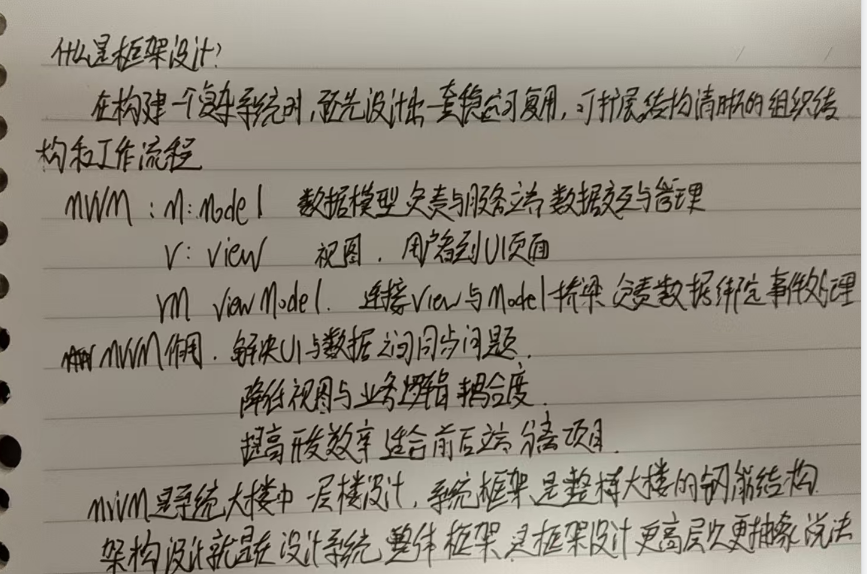 什么是框架设计?
在构建一个复杂系统时,预先设计出一套稳定可复用,可扩展结构清晰的组织结
构和工作流程
MVVM : M: Model 数据模型 负责与服务端数据交互与管理
V: View 视图. 用户看到UI页面
VM ViewModel. 连接View与Model桥梁 负责数据绑定 事件处理
MVVM作用. 解决UI与数据之间同步问题.
降低视图与业务逻辑耦合度.
提高开发效率 适合前后端分离项目.
MVVM是系统大楼中一层楼设计, 系统框架是整栋大楼的钢筋结构
架构设计就是在设计系统 整体框架 是框架设计更高层次更抽象说法